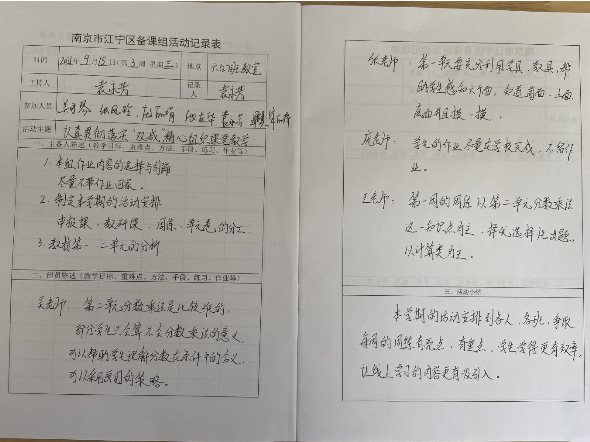 南京市江宁区备课组活动记录表
时间 2021年9月15日(第3周 星期三) 地点 六(1)班教室
主持人 袁永芳 记录人 袁永芳
参加人员
活动主题 认真贯彻落实“双减”精心组织课堂教学
一、主备人综述（教学目标、重难点、方法、手段、练习、作业等）
1. 本组作业内容的选择与 
尽量不带作业回家。
2. 制定本学期的活动安排
申报课、教研课、周练、单元卷的分工
3. 教材第一、二单元的分析
二、组员综述（教学目标、重难点、方法、手段、练习、作业等）
吴老师 第二单元分数乘法是比较难的，
部分学生不会算不会分数乘法的意义，
可以帮助学生理解分数在条件中的含义，
可以采用画图的策略。
张老师： 第一单元要充分利用学具、教具，帮
助学生感知六个面，知道前面、上面，
底面并且摸一摸。
老师： 学生的作业尽量在学校完成，不留作
业。
王老师： 第一周的周练以第二单元分数乘法
这一知识点为主，择优选择把出题，
以计算类为主。
三、活动小结
本学期的活动安排到各人、各班，争取
每周的周练有亮点、有重点，学生觉得更有效率，
让线上学习的内容更有吸引人。